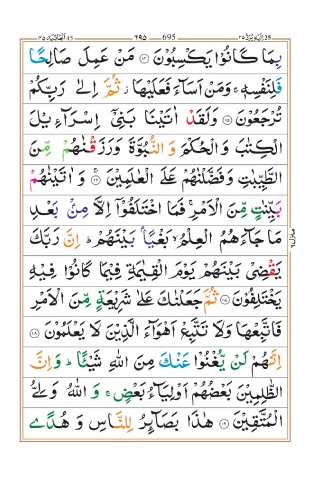 الجاثية ٤٥ ٦٩٥ 695 اليه يرد ٢٥
بِمَا كَانُوْا يَكْسِبُوْنَ ۝١٤ مَنْ عَمِلَ صَالِحًا
فَلِنَفْسِهٖ ۚ وَمَنْ اَسَآءَ فَعَلَيْهَا ۫ ثُمَّ اِلٰى رَبِّكُمْ
تُرْجَعُوْنَ ۝١٥ وَلَقَدْ اٰتَيْنَا بَنِىْۤ اِسْرَآءِيْلَ
الْكِتٰبَ وَالْحُكْمَ وَالنُّبُوَّةَ وَرَزَقْنٰهُمْ مِّنَ
الطَّيِّبٰتِ وَفَضَّلْنٰهُمْ عَلَى الْعٰلَمِيْنَ ۝١٦ وَاٰتَيْنٰهُمْ
بَيِّنٰتٍ مِّنَ الْاَمْرِ ۚ فَمَا اخْتَلَفُوْۤا اِلَّا مِنْۢ بَعْدِ
مَا جَآءَهُمُ الْعِلْمُ ۙ بَغْيًاۢ بَيْنَهُمْ ؕ اِنَّ رَبَّكَ
يَقْضِىْ بَيْنَهُمْ يَوْمَ الْقِيٰمَةِ فِيْمَا كَانُوْا فِيْهِ
يَخْتَلِفُوْنَ ۝١٧ ثُمَّ جَعَلْنٰكَ عَلٰى شَرِيْعَةٍ مِّنَ الْاَمْرِ
فَاتَّبِعْهَا وَلَا تَتَّبِعْ اَهْوَآءَ الَّذِيْنَ لَا يَعْلَمُوْنَ ۝١٨
اِنَّهُمْ لَنْ يُّغْنُوْا عَنْكَ مِنَ اللّٰهِ شَيْـًٔا ؕ وَاِنَّ
الظّٰلِمِيْنَ بَعْضُهُمْ اَوْلِيَآءُ بَعْضٍ ۚ وَاللّٰهُ وَلِىُّ
الْمُتَّقِيْنَ ۝١٩ هٰذَا بَصَآئِرُ لِلنَّاسِ وَهُدًى
منزل ٦